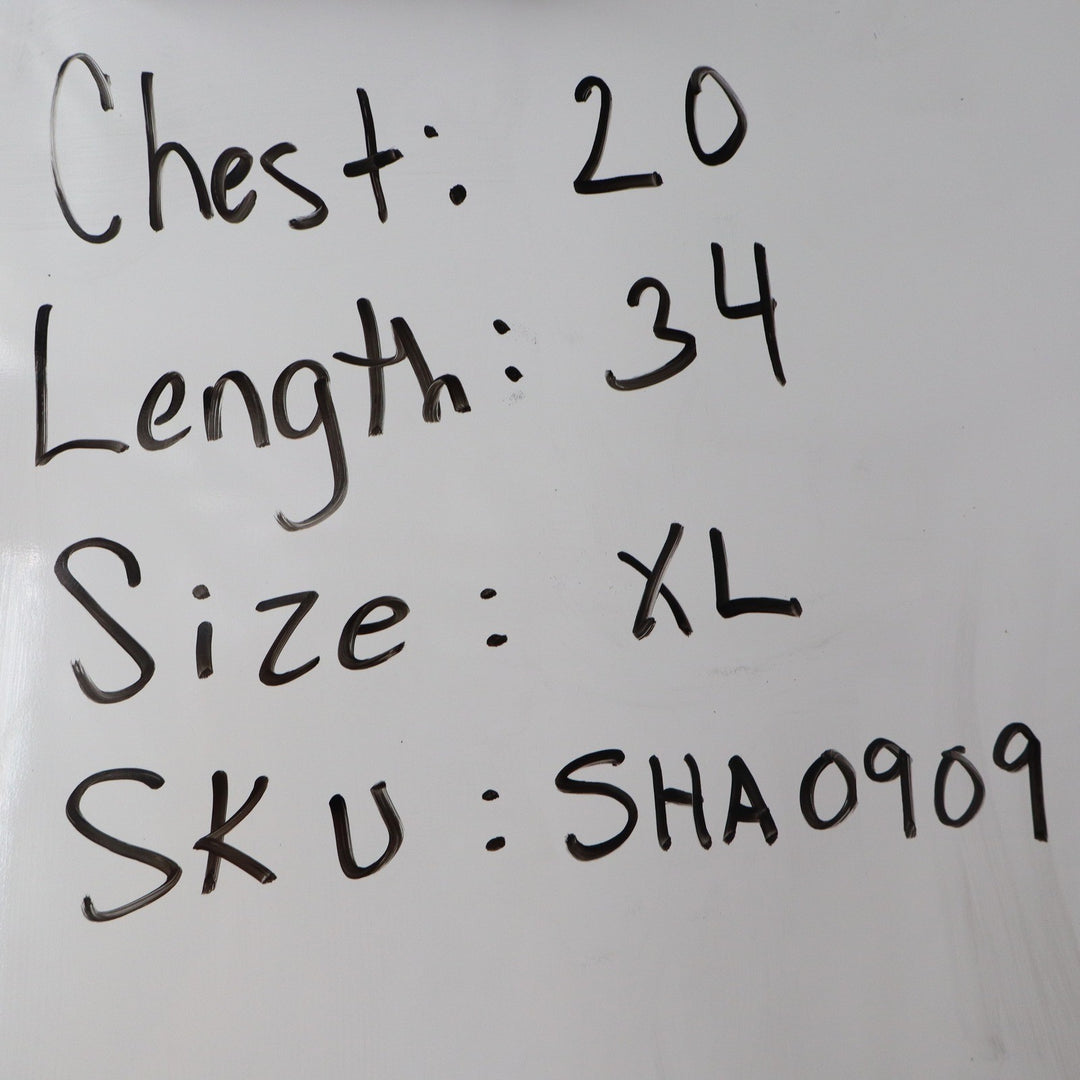 Chest: 20
Length: 34
Size: XL
SKU: SHA0909